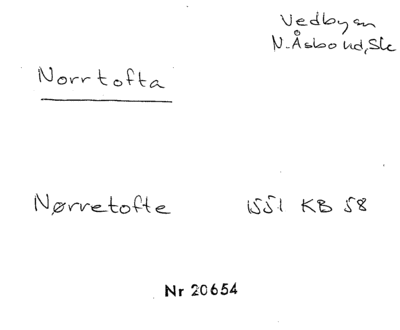 Vedbyan
N. Åsbo hd, Sk
Norrtofta
Nørretofte 1551 KB 58
Nr 20654